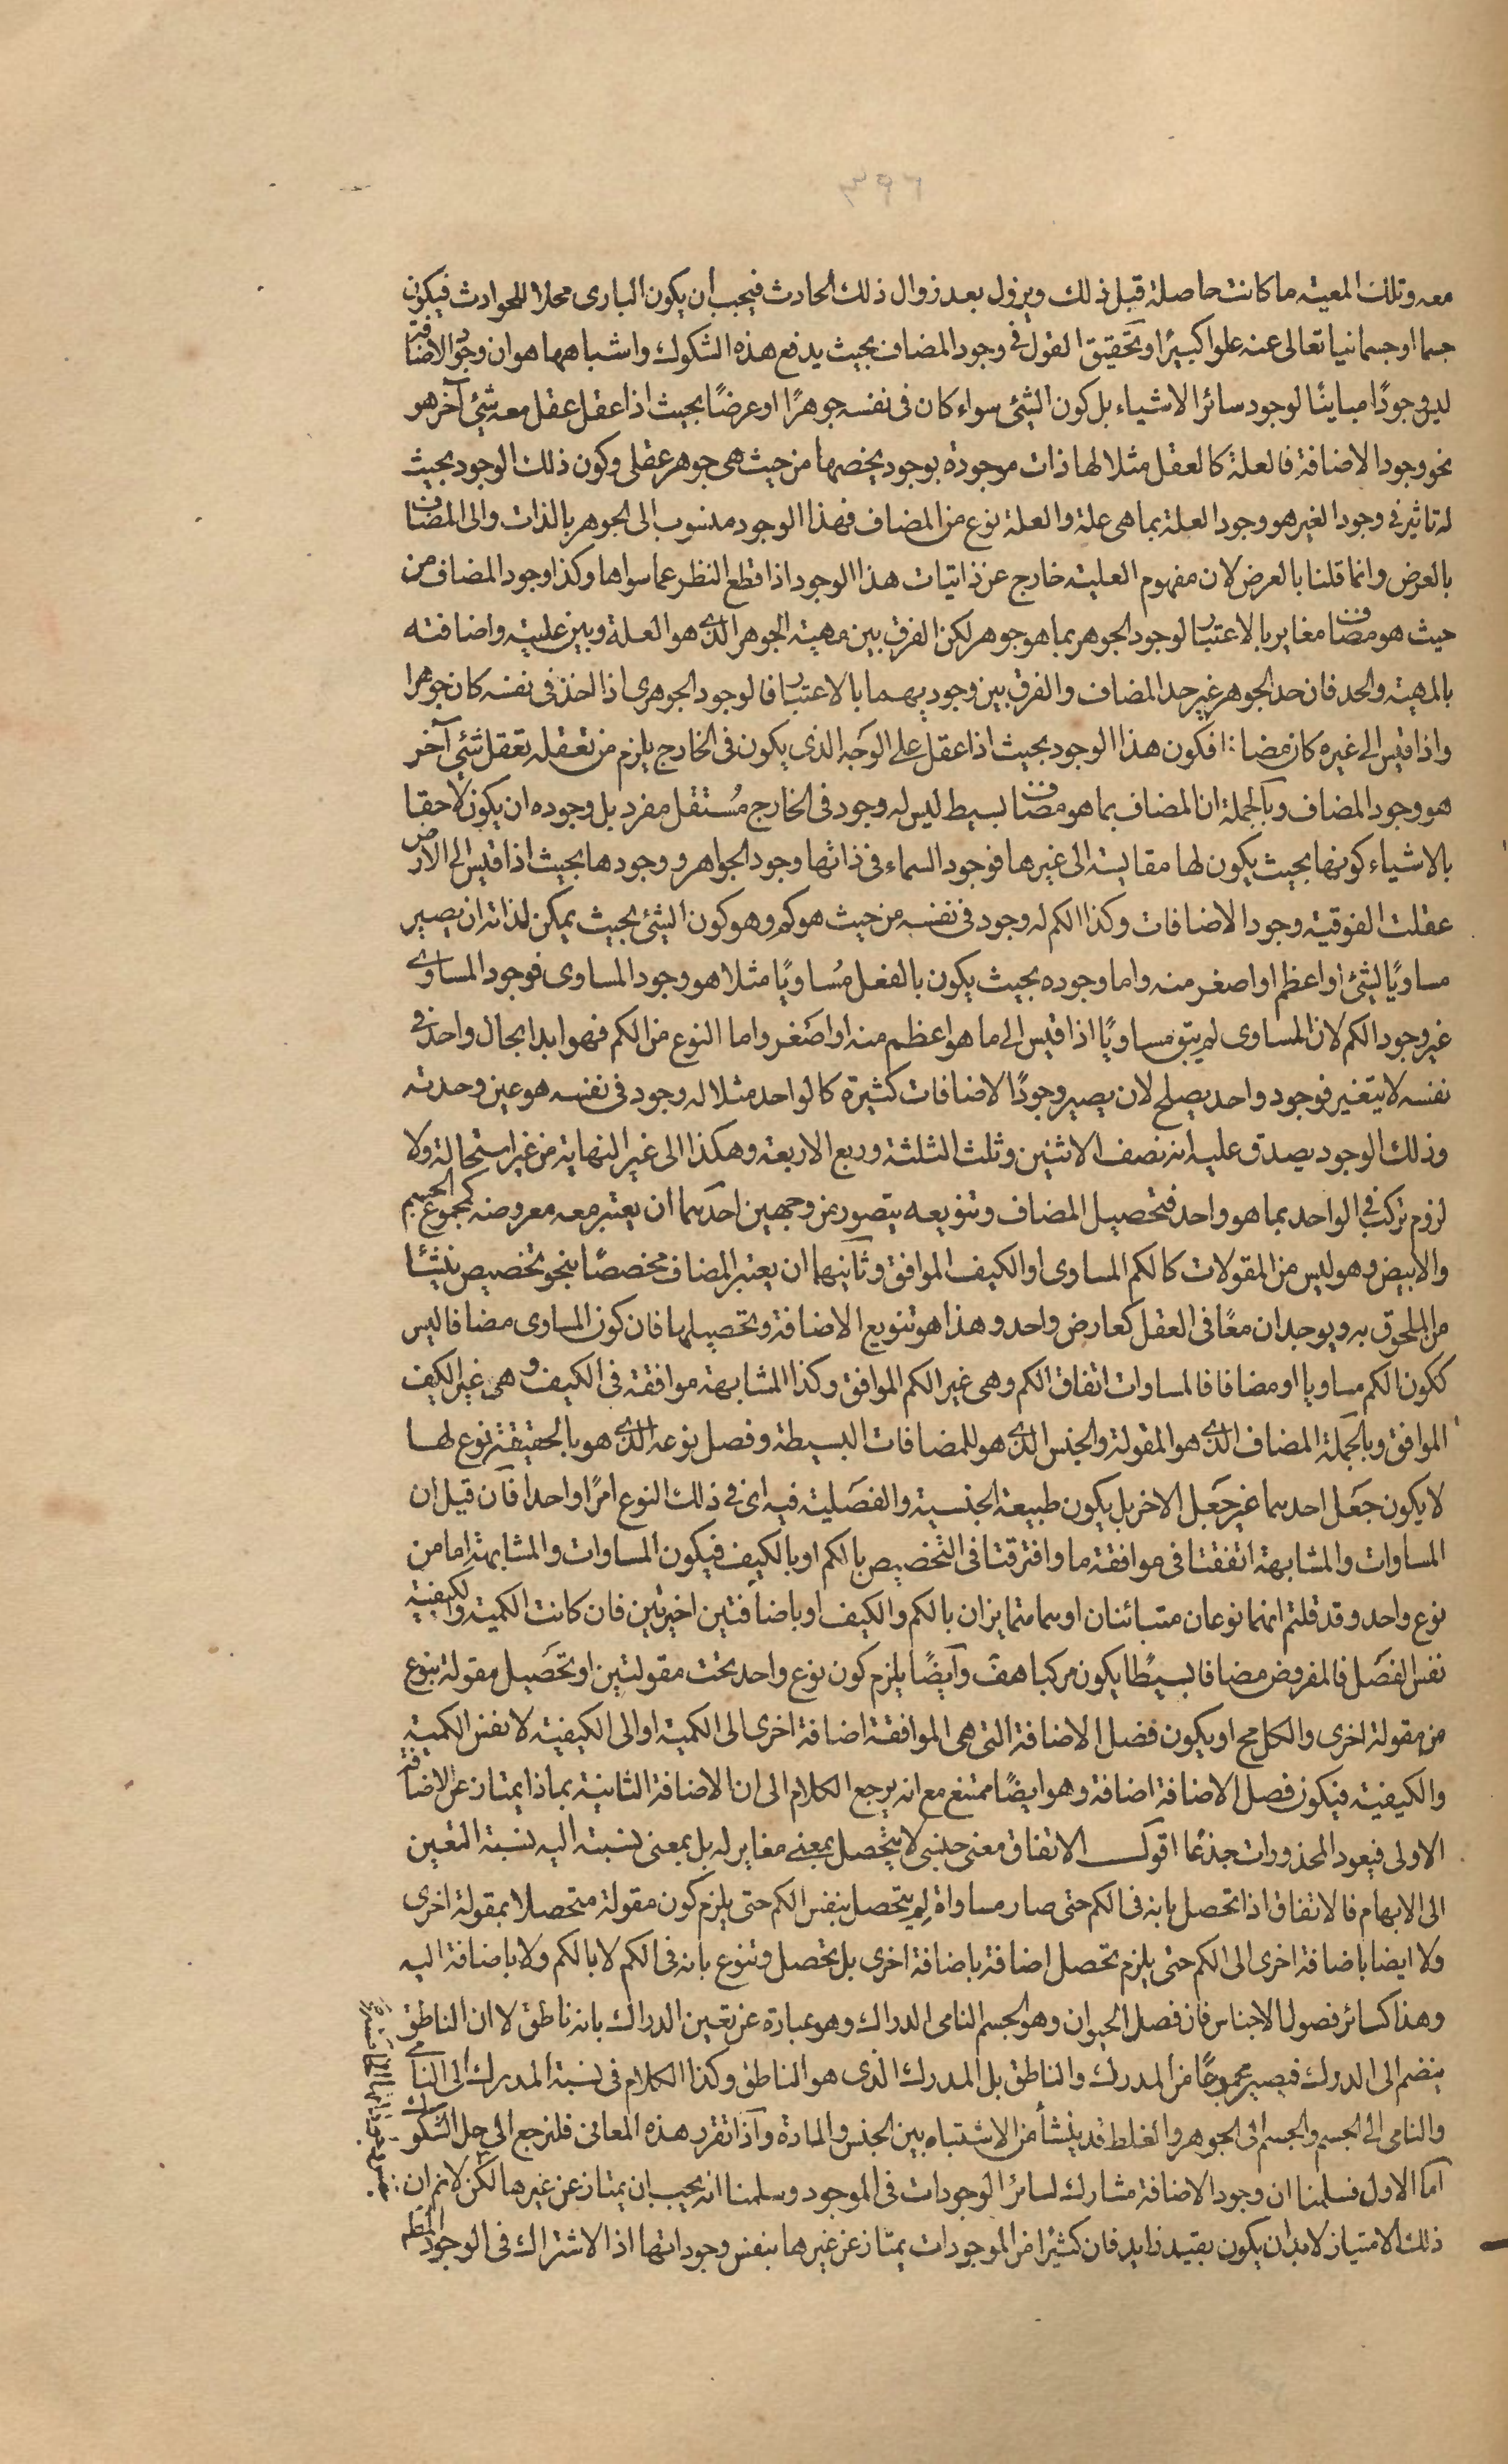 ٣٩٦
معه وتلك المعية ما كانت حاصلة قبل ذلك ويزول بعد زوال ذلك الحادث فيجب أن يكون البارى محلا للحوادث فيكون
جسما او جسمانيا تعالى عنه علوا كبيرًا وتحقيق القول فى وجود المضاف بحيث يدفع هذه الشكوك واشباهها هو ان وجود الاضافة
ليس وجودًا مباينًا لوجود سائر الاشياء بل كون الشئ سواء كان فى نفسه جوهرًا او عرضًا بحيث اذا عقل عقل معه شئ آخر هو
نحو وجود الاضافة فالعلة كالعقل مثلا لها ذات موجودة بوجود يخصها من حيث هى جوهر عقلى وكون ذلك الوجود بحيث
له تاثير فى وجود الغير هو وجود العلة بما هى علة والعلة نوع من المضاف فهذا الوجود منسوب الى الجوهر بالذات والى المضاف
بالعرض وانما قلنا بالعرض لان مفهوم العلية خارج عن ذاتيات هذا الوجود اذا قطع النظر عما سواها وكذا وجود المضاف من
حيث هو مضاف مغاير بالاعتبار لوجود الجوهر بما هو جوهر لكن الفرق بين مهية الجوهر الذى هو العلة وبين علية واضافته
بالمهية والحد فان حد الجوهر غير حد المضاف والفرق بين وجوديهما بالاعتبار فالوجود الجوهرى اذا اخذ فى نفسه كان جوهرا
واذا قيس الى غيره كان مضافا فكون هذا الوجود بحيث اذا عقل على الوجه الذى يكون فى الخارج يلزم من تعقله تعقل شئ آخر
هو وجود المضاف وبالجملة ان المضاف بما هو مضاف بسيط ليس له وجود فى الخارج مستقل مفرد بل وجوده ان يكون لاحقا
بالاشياء كونها بحيث يكون لها مقايسة الى غيرها فوجود السماء فى ذاتها وجود الجواهر ووجودها بحيث اذا قيس الى الارض
عقلت الفوقية وجود الاضافات وكذا الكم له وجود فى نفسه من حيث هو كم وهو كون الشئ بحيث يمكن لذاته ان يصير
مساويًا لشئ او اعظم او اصغر منه واما وجوده بحيث يكون بالفعل مساويًا مثلا هو وجود المساوى فوجود المساوى
غير وجود الكم لان المساوى لم يبق مساويًا اذا قيس الى ما هو اعظم منه او اصغر واما النوع من الكم فهو ابدا بحال واحد فى
نفسه لا يتغير فوجود واحد يصلح لان يصير وجودًا لاضافات كثيرة كالواحد مثلا له وجود فى نفسه هو عين وحدته
وذلك الوجود يصدق عليه انه نصف الاثنين وثلث الثلثة وربع الاربعة وهكذا الى غير النهاية من غير استحالة ولا
لزوم تركب فى الواحد بما هو واحد فتحصيل المضاف وتنويعه يتصور من وجهين احدهما ان يعتبر معه معروضه كمجموع الجسم
والابيض وهو ليس من المقولات كالكم المساوى او الكيف الموافق وثانيهما ان يعتبر المضاف مخصصًا بنحو تخصيص ينشأ
من الملحوق به ويوجدان معًا فى العقل كعارض واحد وهذا هو تنويع الاضافة وتحصيلها فان كون المساوى مضافا ليس
ككون الكم مساويا او مضافا فالمساوات اتفاق الكم وهى غير الكم الموافق وكذا المشابهة موافقة فى الكيف وهى غير الكيف
الموافق وبالجملة المضاف الذى هو المقولة والجنس الذى هو للمضافات البسيطة وفصل نوعه الذى هو بالحقيقة نوع لها
لا يكون جعل احدهما غير جعل الاخر بل يكون طبيعة الجنسية والفصلية فيه اى فى ذلك النوع امرًا واحدا فان قيل ان
المساوات والمشابهة اتفقتا فى موافقة ما وافترقتا فى التخصيص بالكم او بالكيف فيكون المساوات والمشابهة اما من
نوع واحد وقد قلتم انهما نوعان متبائنان او هما متمايزان بالكم والكيف او باضافتين اخريين فان كانت الكمية والكيفية
نفس الفصل فالمفروض مضافا بسيطًا يكون مركبا هف وايضًا يلزم كون نوع واحد تحت مقولتين او تحصيل مقولة بنوع
من مقولة اخرى والكل مح او يكون فصل الاضافة التى هى الموافقة اضافة اخرى الى الكمية او الى الكيفية لا نفس الكمية
والكيفية فيكون فصل الاضافة اضافة وهو ايضًا ممتنع مع انه يرجع الكلام الى ان الاضافة الثانية بماذا يمتاز عن الاضافة
الاولى فيعود المحذورات جذعًا اقول الاتفاق معنى جنسى لا يتحصل بمعنى مغاير له بل بمعنى نسبته اليه نسبة التعين
الى الابهام فالاتفاق اذا تحصل بانه فى الكم حتى صار مساواة لم يتحصل بنفس الكم حتى يلزم كون مقولة متحصلا بمقولة اخرى
ولا ايضا باضافة اخرى الى الكم حتى يلزم تحصل اضافة باضافة اخرى بل تحصل وتنوع بانه فى الكم لا بالكم ولا باضافة اليه
وهذا كسائر فصول الاجناس فان فصل الحيوان وهو الجسم النامى الدراك وهو عبارة عن تعين الدراك بانه ناطق لا ان الناطق
ينضم الى الدراك فيصير مجموعًا من المدرك والناطق بل المدرك الذى هو الناطق وكذا الكلام فى نسبة المدرك الى النامى
والنامى الى الجسم والجسم الى الجوهر والغلط قد ينشأ من الاشتباه بين الجنس والمادة واذا تقرر هذه المعانى فلنرجع الى حل الشكوك
اما الاول فسلمنا ان وجود الاضافة مشارك لسائر الوجودات فى الموجود وسلمنا انه يجب ان يمتاز عن غيرها لكن لا نم ان
ذلك الامتياز لابد ان يكون بقيد زايد فان كثيرًا من الموجودات يمتاز عن غيرها بنفس وجوداتها اذ الاشتراك فى الوجود المطلم